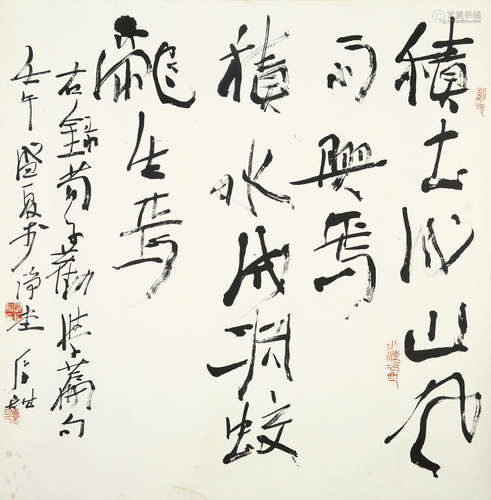 積土成山风
雨興焉
積水成渊蛟
龍生焉
右錄荀子勸学篇句
壬午盛夏於净堂